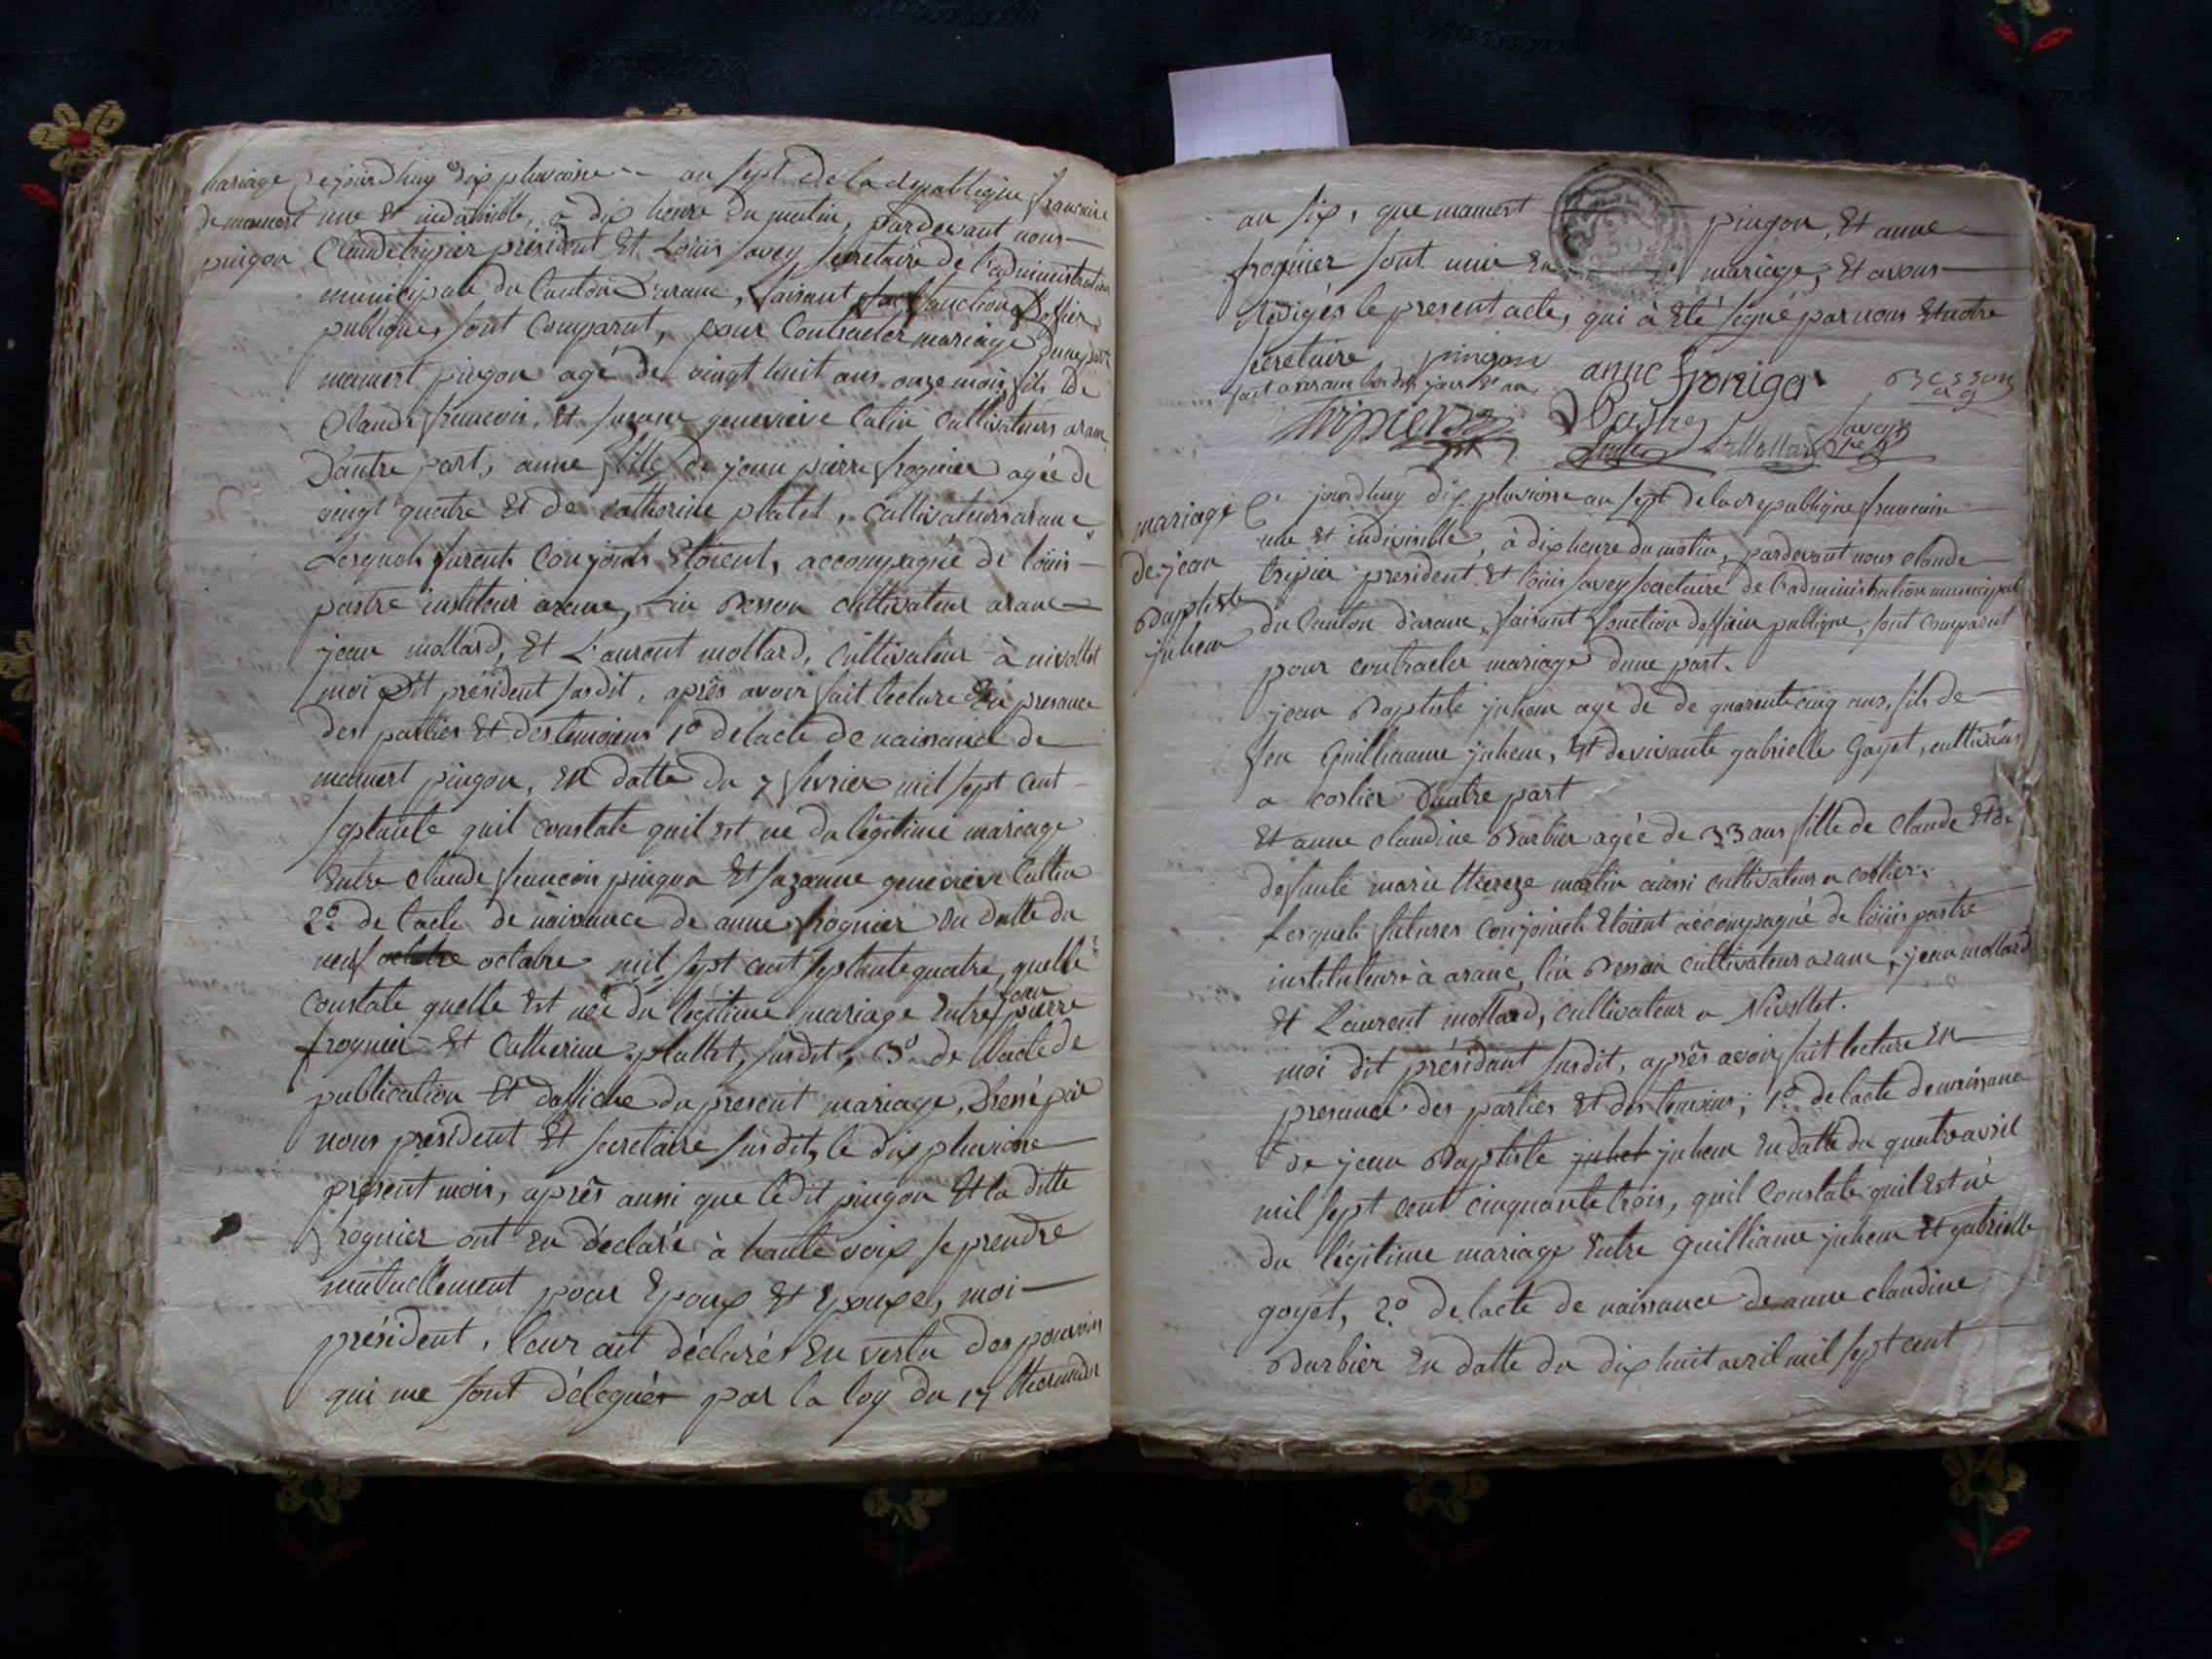 mariage
de mamert
pingon
cejourdhuy dix pluviose an sept de la republique francaise
une et indivisible, à dix heure du matin, pardevant nous
Claude tripier président et Loüis savey secretaire de l'administration
municipale du Canton d'aranc, faisant fonction dofficier
publique, sont Comparut, pour Contracter mariage dune part
mamert pingon agé de vingt huit ans onze mois fils de
Claude francois, et suzane genevieve Catin Cultivateurs aranc
D'autre part, anne fille de jean pierre frognier agée de
vingt quatre et de catherine platet, Cultivateurs aranc
Lesquels futurs Conjoints Etoient, accompagné de loüis
pastre instituteur aranc, Lin Besson Cultivateur aranc
jean mollard, et Laurent mollard, Cultivateur à nivollet
moi dit président susdit, après avoir fait lecture En presance
des parties et des temoiens 1º delacte de naissance de
mamert pingon, en datte du 7 fevrier mil sept cent
septante quil constate quil est né du légitime mariage
Entre claude francois pingon et suzanne genevieve Cattin
2º de l'acte de naissance de anne frognier en datte du
neuf octobre octobre mil sept cent septante quatre, quelle
constate quelle est née du légitime mariage entre jean pierre
frognier et Catherine plattet, susdit, 3º de l'acte de
publication et daffiche du present mariage, Dressé par
nous président et secretaire susdit, le dix pluviose
present mois, après aussi que ledit pingon et la ditte
frognier ont eu déclaré à haute voix se prendre
mutuellement pour Epoux et Epouxe, moi
président, leur ait déclarés En vertu des pouvoirs
qui me sont délegués par la loy du 17 thermidor
an six, que mamert pingon, et anne
frognier sont unie en mariage, et avons
rédigés le present acte, qui à été signé par nous et notre
secretaire pingon anne froniger Besson
fait a aranc les dits jour et an
tripier Pastre L Mollard savey
mariage
de jean
Baptiste
juhem
Ce jourdhuy dix pluviose an sept de la republique francaise
une et indivisible, à dix heure du matin, pardevant nous claude
tripier president et loüis savey secretaire de l'administration municipal
du Canton d'aranc, faisant fonction dofficier publique, sont comparut
pour contracter mariage dune part.
jean Baptiste juhem agé de de quarente cinq ans, fils de
feu Guillianme juhem, et devivante gabrielle Goyet, cultivateurs
a corlier D'autre part
Et anne claudine Barbier agée de 33 ans fille de claude et de
defunte marie thereze martin aussi cultivateur a corlier.
Lesquels futures conjoinct Etoient accompagné de loüis pastre
instituteur à aranc, lin Besson cultivateur aranc, jean mollard
et Laurent mollard, cultivateur a Nivollet.
moi dit président susdit, après avoir fait lecture En
presance des parties et des temoins; 1º delacte de naissance
de jean Baptiste juhet juhem en datte du quatre avril
mil sept cent cinquante trois, quil constate quil est né
du légitime mariage Entre Guilliaume juhem et gabrielle
goyet, 2º de lacte de naissance de anne claudine
Barbier en datte du dix huit avril mil sept cent